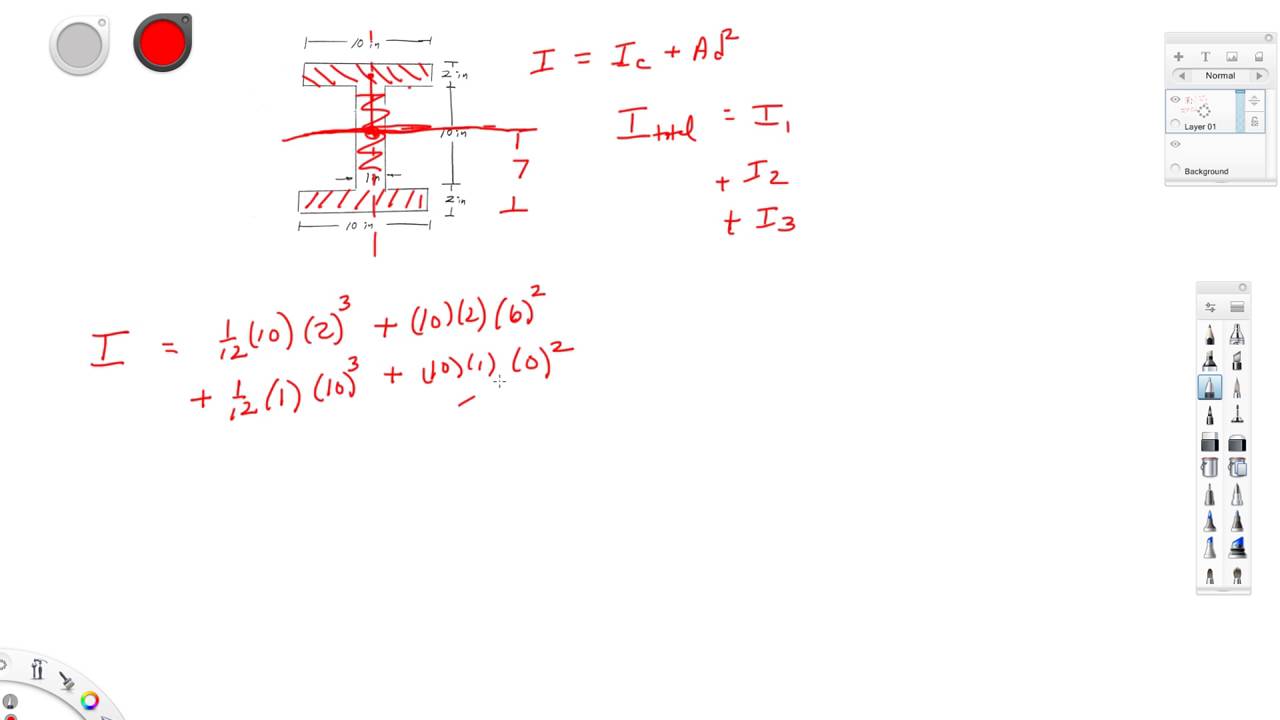 10 in
2 in
10 in
1 in
2 in
10 in
7
I = I_c + Ad²
I_total = I₁
+ I₂
+ I₃
I = 1/12 (10)(2)³ + (10)(2)(6)²
+ 1/12 (1)(10)³ + (10)(1)(0)²
T
Normal
Layer 01
Background